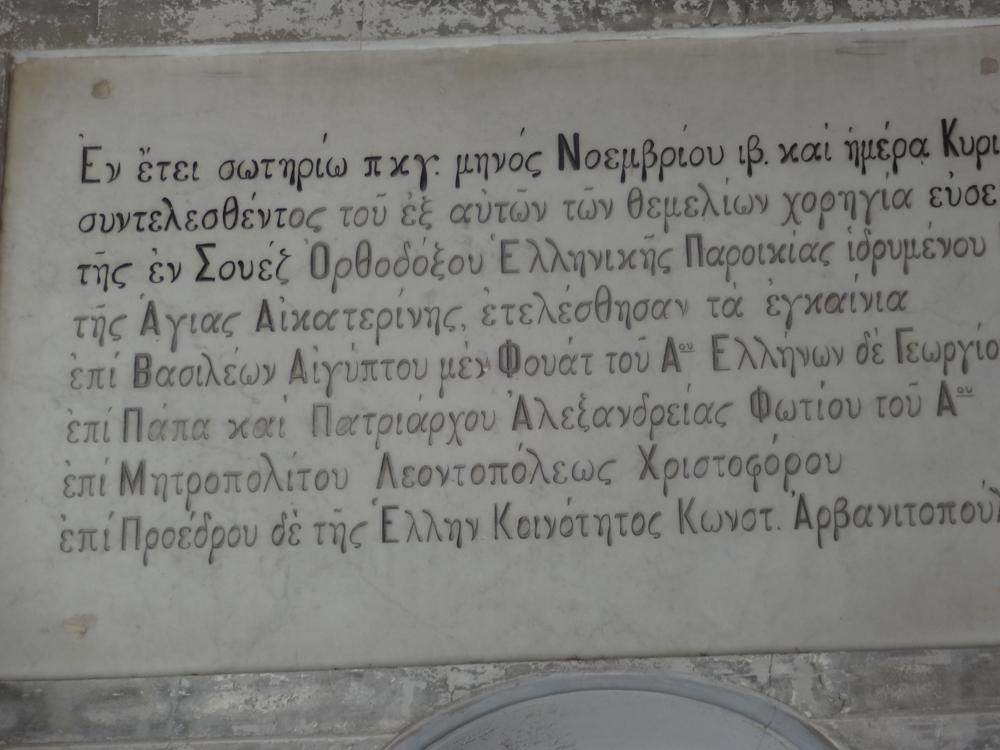 Ἐν ἔτει σωτηρίω πκγ. μηνός Νοεμβρίου ιβ. καί ἡμέρᾳ Κυρι
συντελεσθέντος τοῦ ἐξ αὐτῶν τῶν θεμελίων χορηγία εὐσε
τῆς ἐν Σουέζ Ὀρθοδόξου Ἑλληνικῆς Παροικίας ἱδρυμένου
τῆς Ἁγιας Αἰκατερίνης, ἐτελέσθησαν τὰ ἐγκαίνια
ἐπί Βασιλέων Αἰγύπτου μέν Φουάτ τοῦ Αου Ἑλλήνων δὲ Γεωργίο
ἐπί Πάπα καί Πατριάρχου Ἀλεξανδρείας Φωτίου τοῦ Αου
ἐπί Μητροπολίτου Λεοντοπόλεως Χριστοφόρου
ἐπί Προέδρου δὲ τῆς Ἑλλην Κοινότητος Κωνστ. Ἀρβανιτοπούλ